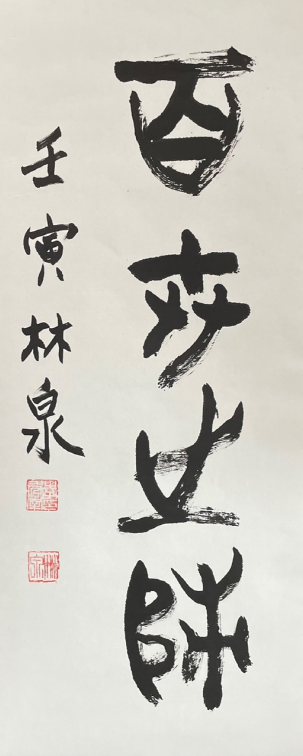 百世之師
壬寅林泉